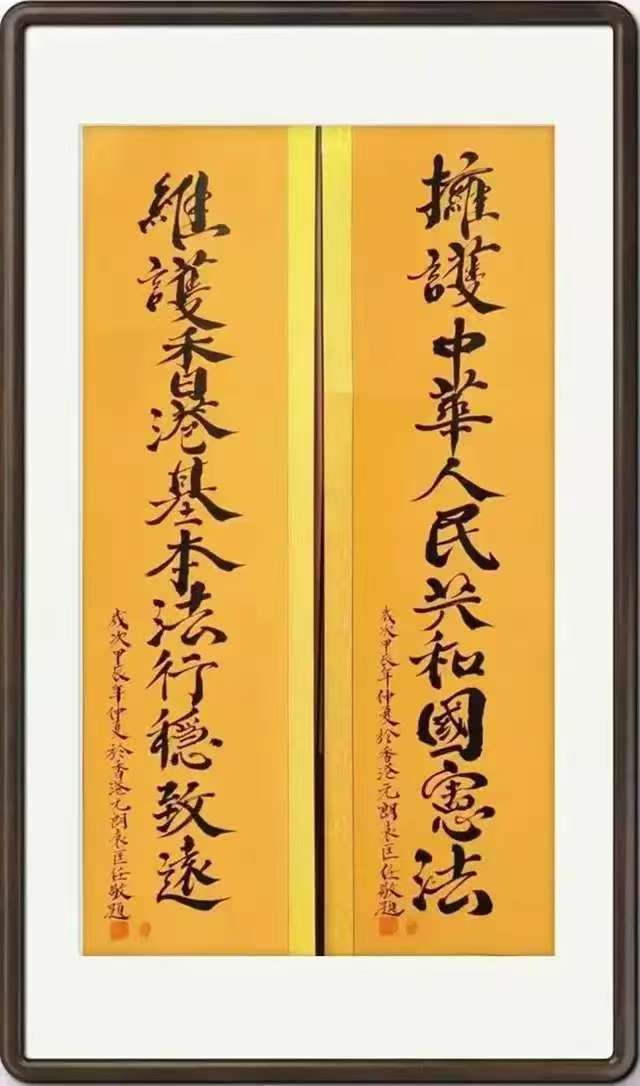 擁護中華人民共和國憲法
歲次甲辰年仲夏於香港元朗袁匡任敬題
維護香港基本法行穩致遠
歲次甲辰年仲夏於香港元朗袁匡任敬題